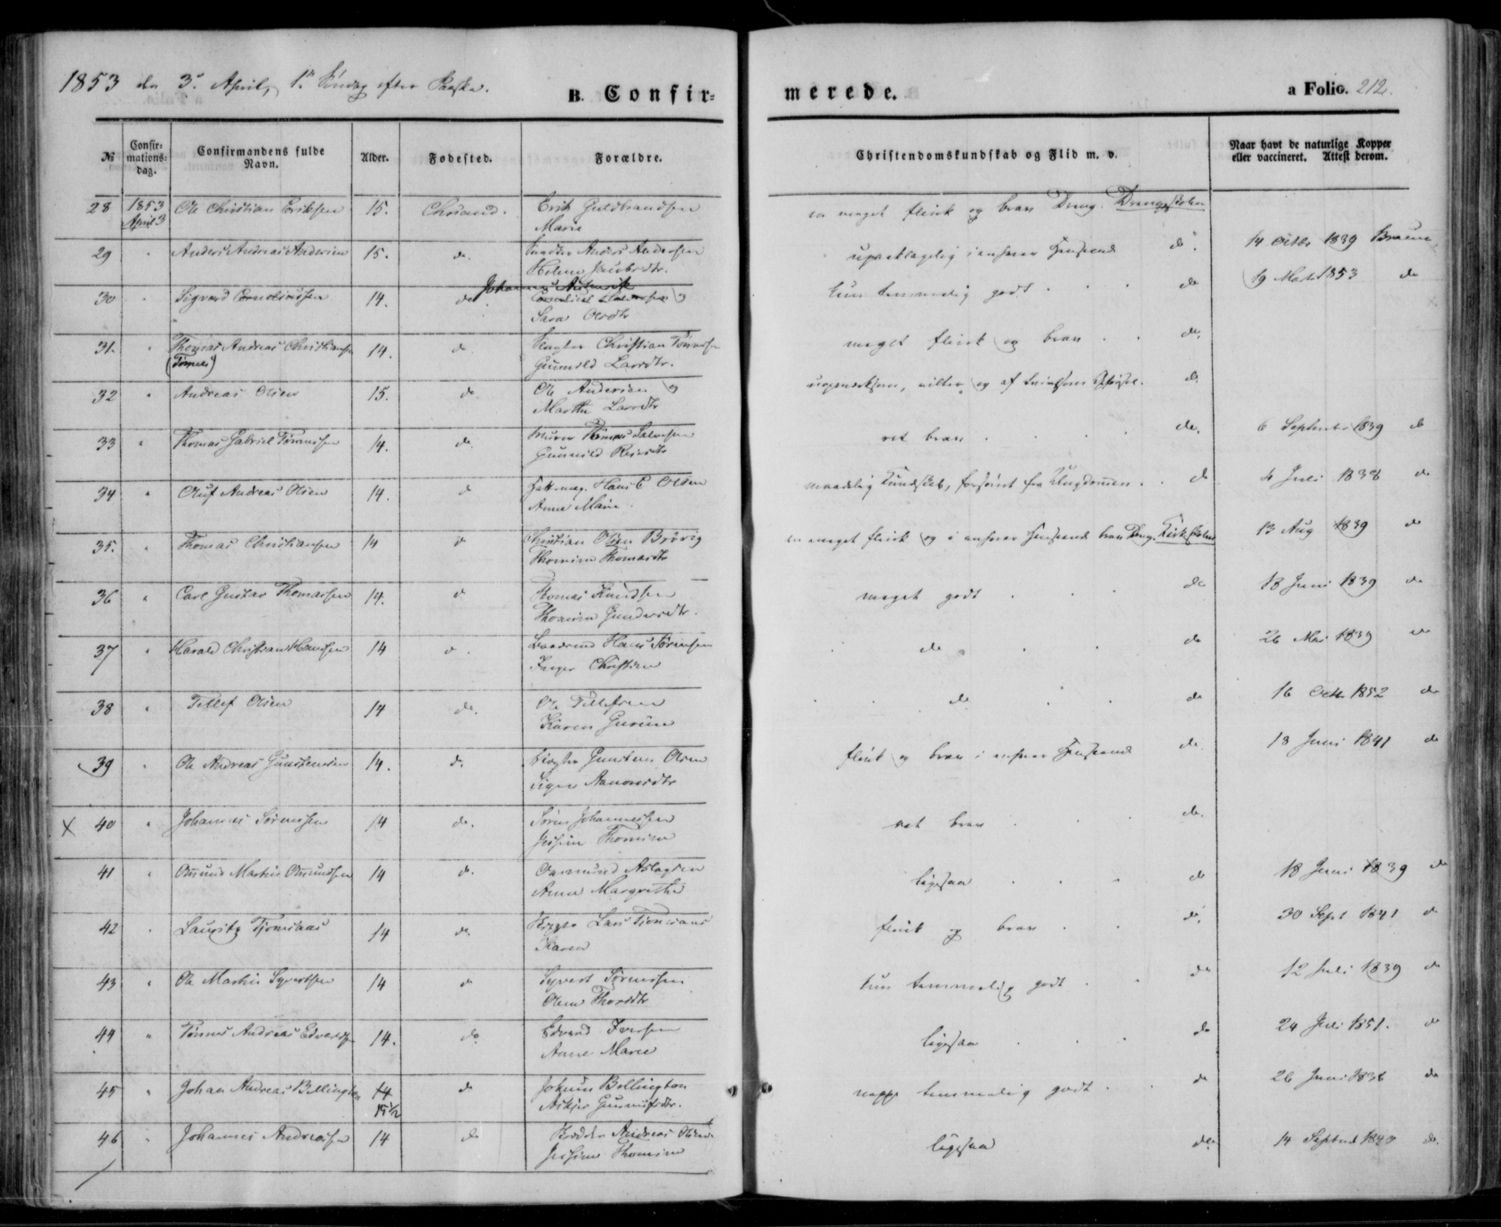 1853 den 3de April, 1ste Søndag efter Paaske.
B. Confir-
merede.
a Folio. 212.
№
Confir-
mations-
dag.
Confirmandens fulde
Navn.
Alder.
Fødested.
Forældre.
Christendomskundskab og Flid m. v.
Naar havt de naturlige Kopper
eller vaccineret. Attest derom.
28 1853 April 3 Ole Christian Eriksen 15. Chrsand. Erik Guldbrandsen
Marie
en meget flink og brav Dreng. Drengeskolen
29 " Anders Andreas Andersen 15. do. Anders Andersen
Helene Jacobsdtr.
upaaklagelig i enhver Henseende do. 14 Octbr 1839
30 " Sigvard Corneliussen 14. do
Sara Olsdtr
kun temmelig godt do 19 Marts 1853 do
31. " Thomas Andreas Christiansen 14. do Christian Tønnesen
(Tønnes) Gunnild Larsdtr.
meget flink og brav do.
32 " Andreas Olsen 15. do Ole Andersen og
Marthe Larsdtr
do.
33 " Thomas Gabriel Tønnessen 14. do. Murer
Gunnild
ret brav do. 6 September 1839 do
34 " Oluf Andreas Olsen 14. do Hans C Olsen
Anne Marie.
maadelig Kundskab, forsømt fra Ungdommen. do 4 Juli 1838 do
35. " Thomas Christiansen 14 do Christian Olsen Brøvig
Thomine Thomasdtr
en meget flink og i enhver Henseende brav Dreng. 13 Aug 1839 do
36 " Carl Gustav Thomassen 14. do Thomas Knudsen
Thomine Gundersdtr.
meget godt do 18 Juni 1839 do
37 " Harald Christian Hansen 14 do. Hans Sørensen
Inger Christine
do do 26 Mai 1839 do
38 " Tellef Olsen 14 do. Ole Tellefsen
Karen Gurine
do do 16 Octb 1852 do
39 " Ole Andreas Gunstensen 14. do. Gunsten Olsen
Signe Aanonsdtr
flink og brav i enhver Henseende do. 13 Juni 1841 do
X 40 " Johannes Sørensen 14 do. Søren Johannessen
Thomine
ret brav do.
41 " Osmund Martin Osmundsen 14 do. Osmund Aslagsen
Anne Margrethe
ligesaa do 18 Juni 1839 do
42 " Lauritz Tjomsaas 14 do. Lars Tjomsaas
Karen
flink og brav do. 30 Sept 1841 do
43 " Ole Martin Syvertsen 14 do Syvert Sørensen
Olene Thorsdtr
kun temmelig godt do 12 Juli 1839 do
44 " Tønnes Andreas Edvardsen 14. do Edvard Iversen
Anne Marie
ligesaa do 24 Juli 1851. do
45 " Johan Andreas Bellington 14 do Johan Bellington
15½
neppe temmelig godt do 26 Juni 1838 do
46 " Johannes Andreassen 14 do Andreas
Thomine
ligesaa do. 14 Septbr 1840 do.